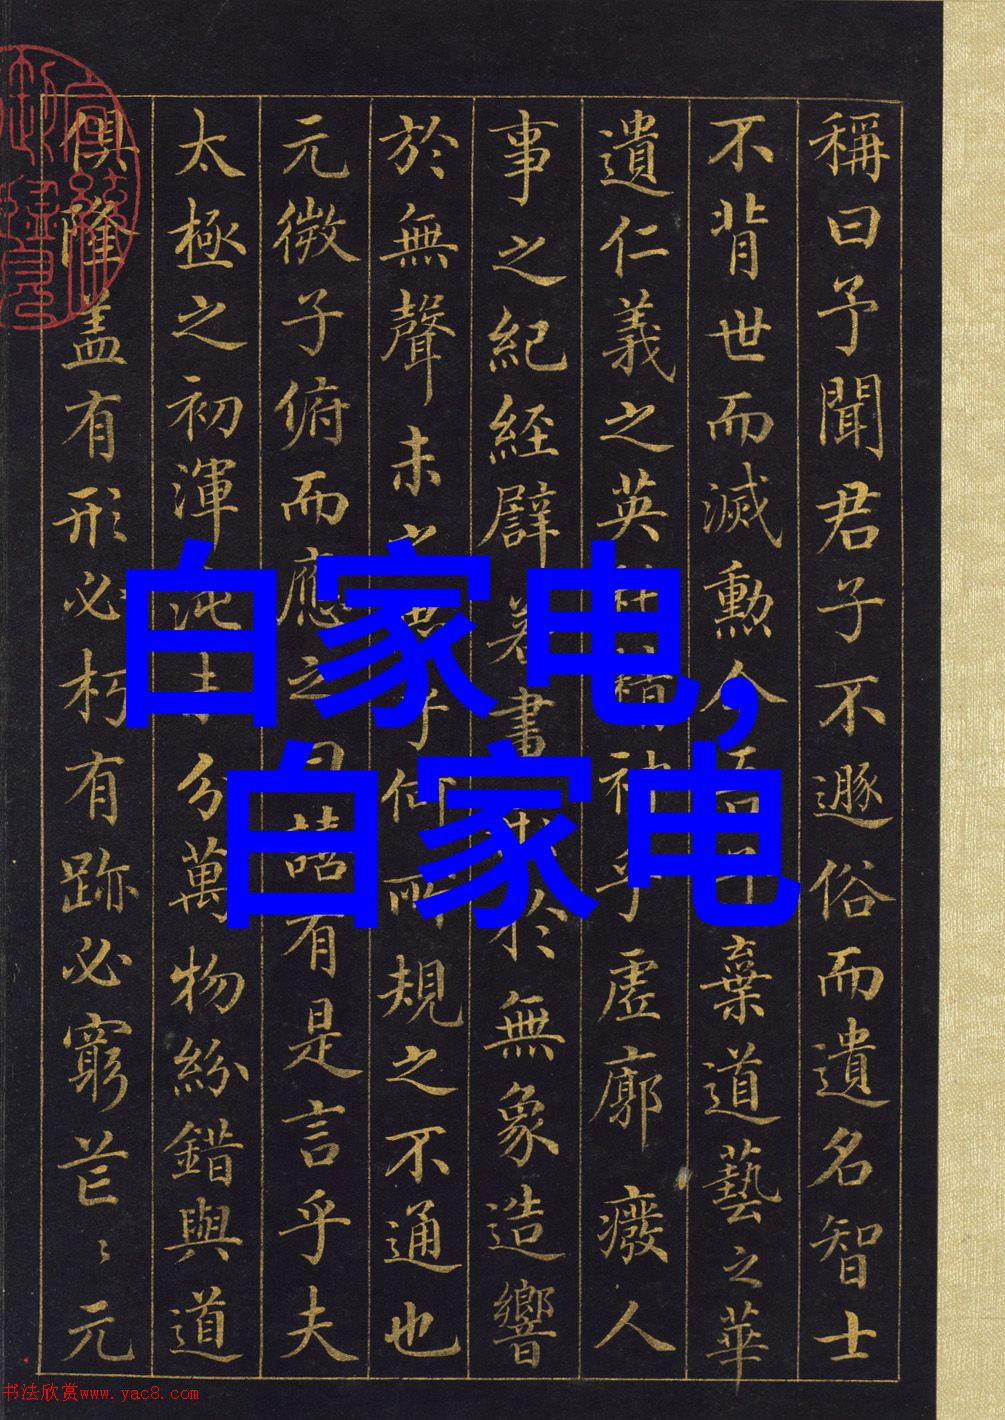 稱曰予聞君子不遯俗而遺名智士
不背世而滅勳今
棄道藝之華
遺仁義之英
神乎虛廓 癈人
事之紀經譬
著書
於無象造響
於無聲
乎
所規之不通也
元微子俯而應之曰
有是言乎夫
太極之初渾沌未分萬物紛錯與道
俱隆盖有形必朽有跡必窮芒〻元
白家电,
白家电
书法欣赏www.yac8.com